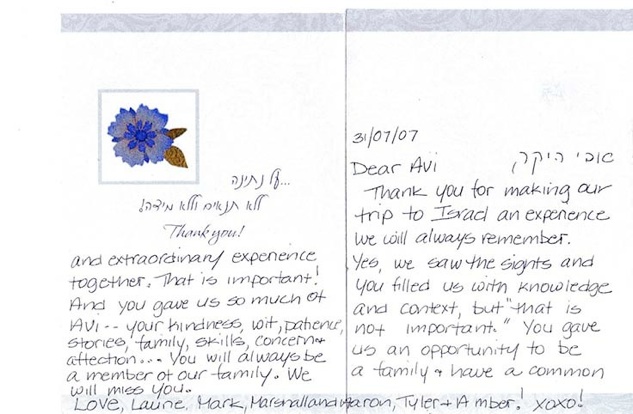 31/07/07
Dear Avi אבי היקר,
Thank you for making our
trip to Israel an experience
we will always remember.
Yes, we saw the sights and
you filled us with knowledge
and context, but "that is
not important." You gave
us an opportunity to be
a family & have a common
...על נתינה
ללא תנאים וללא מידה!
Thank you!
and extraordinary experience
together. That is important!
And you gave us so much of
Avi -- your kindness, wit, patience,
stories, family, skills, concern &
affection... You will always be
a member of our family. We
will miss you.
Love, Laurie, Mark, Marshall and Aaron, Tyler & Amber! xoxo!